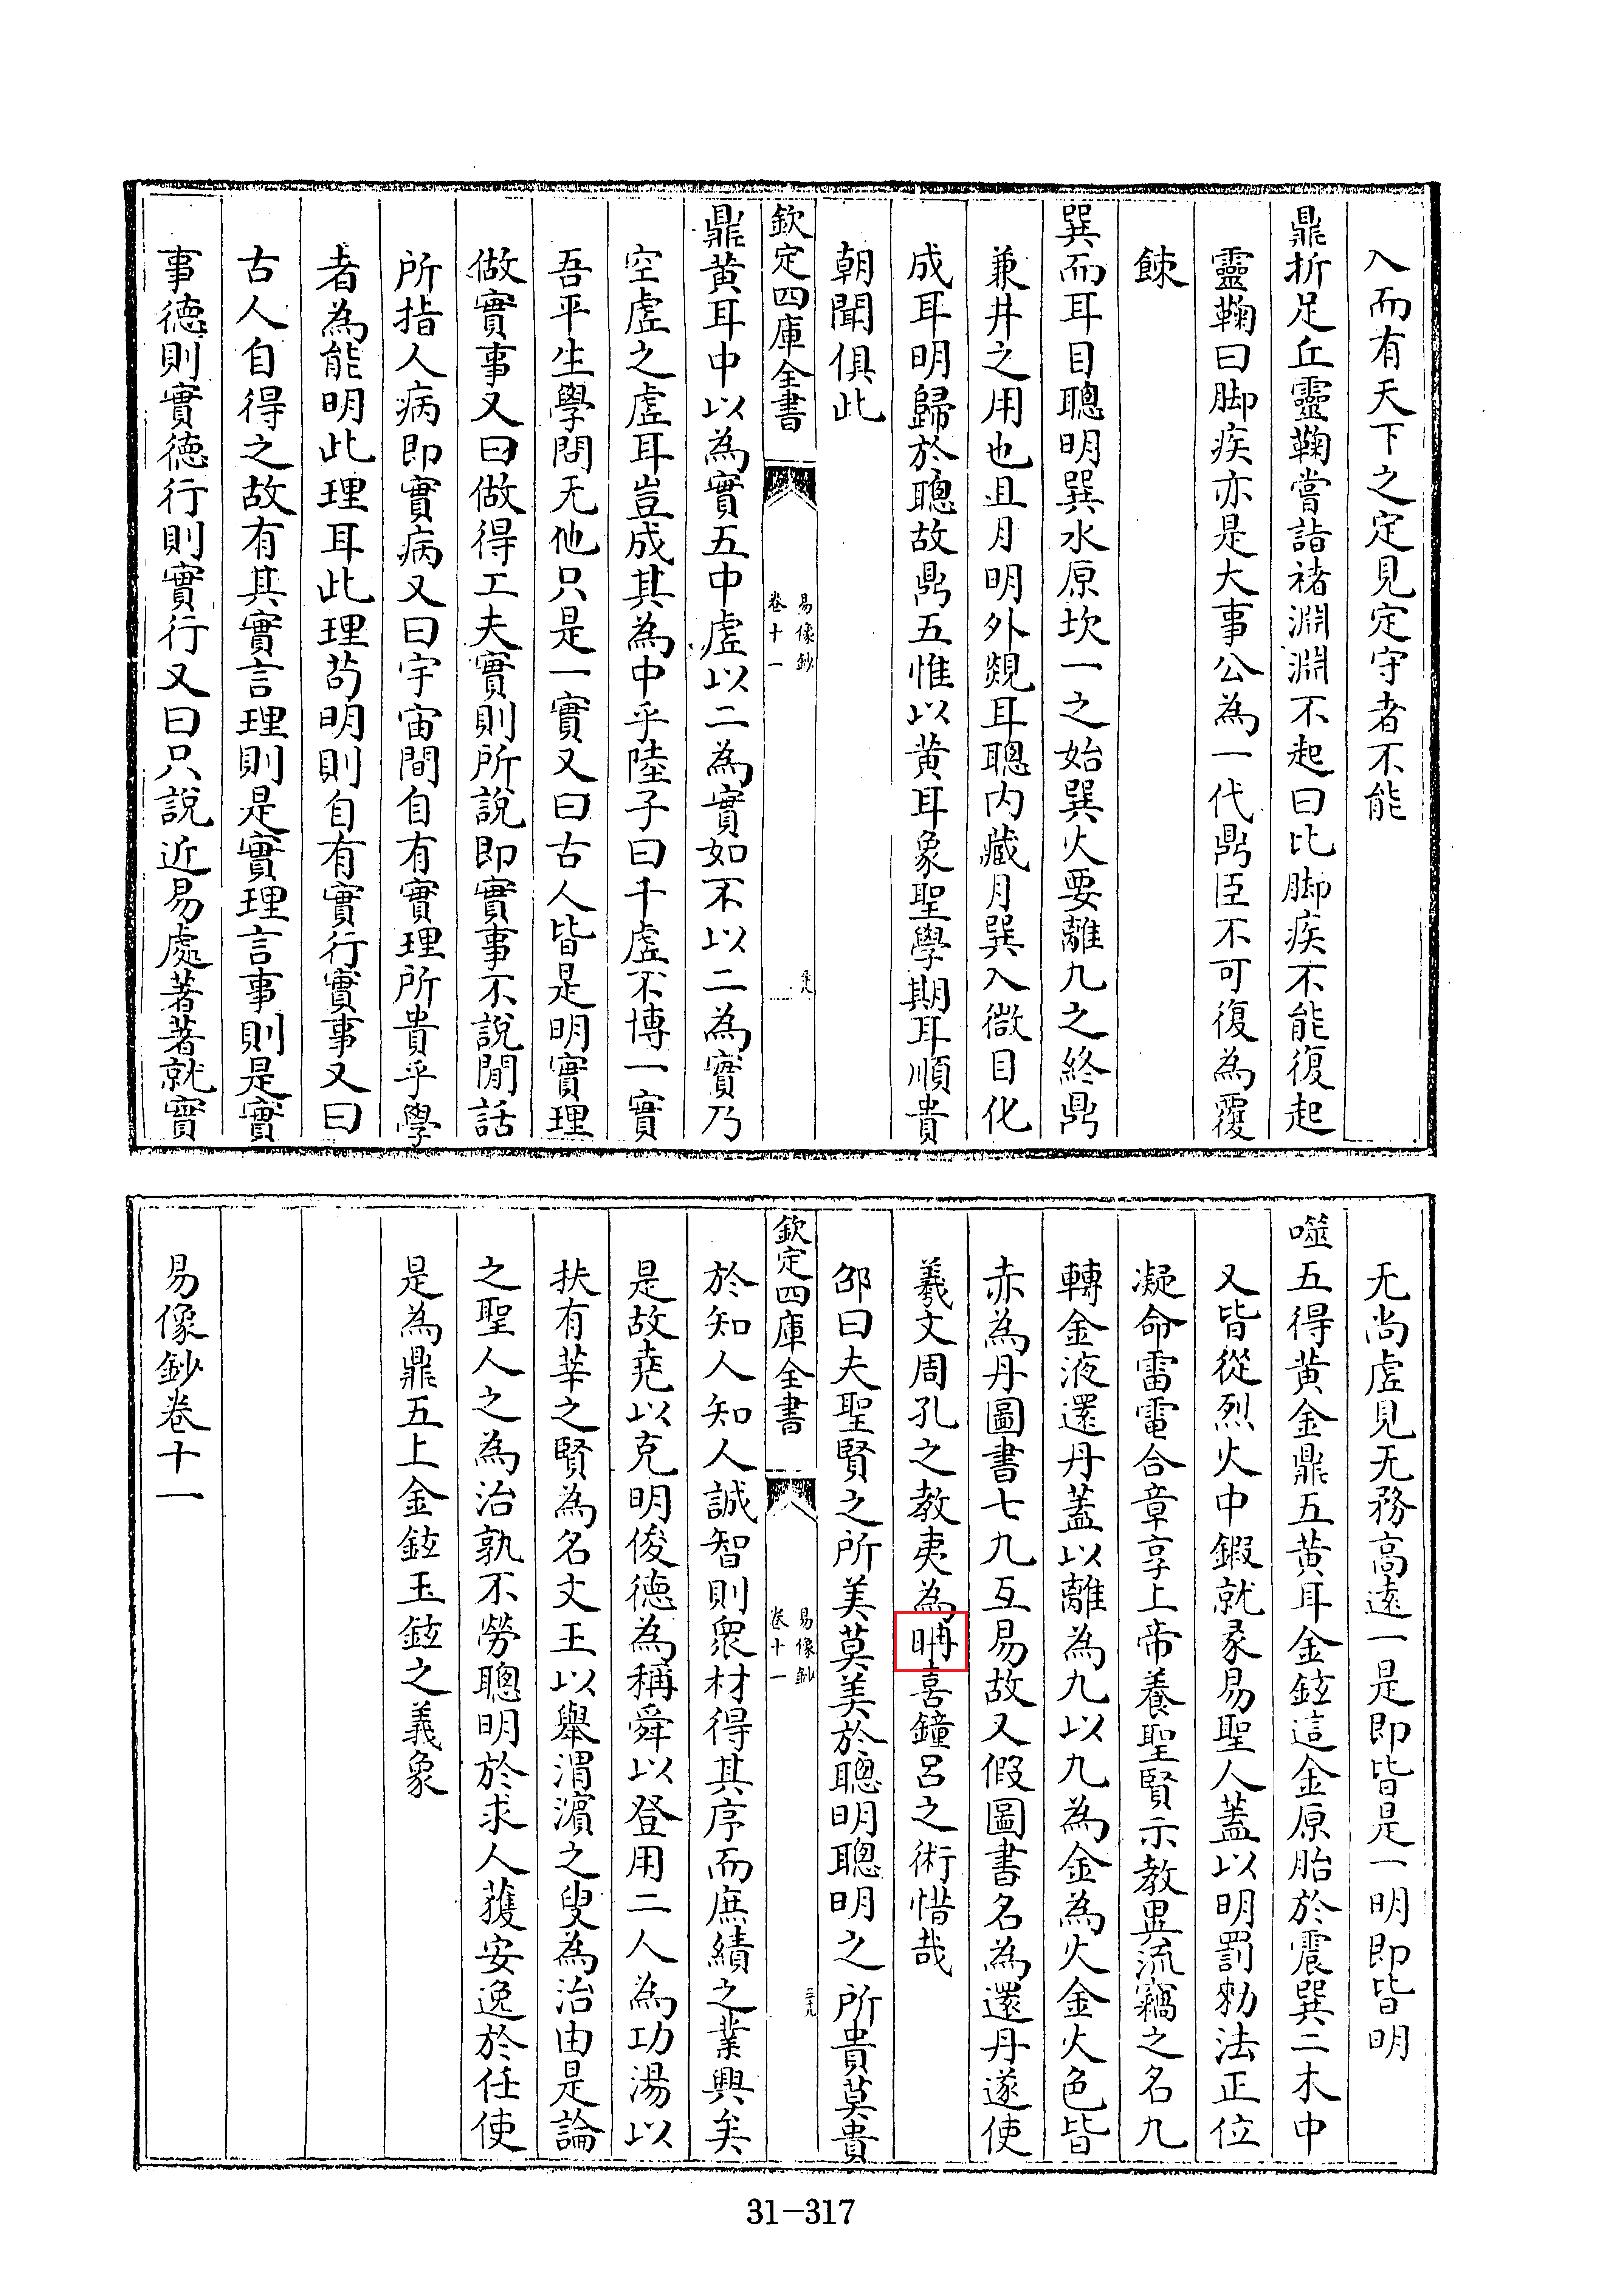 入而有天下之定見定守者不能
鼎折足丘靈鞠嘗詣褚淵淵不起曰比脚疾不能復起
靈鞠曰脚疾亦是大事公為一代鼎臣不可復為覆
餗
巽而耳目聰明巽水原坎一之始巽火要離九之終鼎
兼井之用也且月明外覜耳聰内藏月巽入微目化
成耳明歸於聰故鼎五惟以黄耳象聖學期耳順貴
朝聞俱此
欽定四庫全書
易像鈔
卷十一
鼎黄耳中以為實五中虛以二為實如不以二為實乃
空虛之虛耳豈成其為中乎陸子曰千虛不博一實
吾平生學問无他只是一實又曰古人皆是明實理
做實事又曰做得工夫實則所說即實事不說閒話
所指人病即實病又曰宇宙間自有實理所貴乎學
者為能明此理耳此理苟明則自有實行實事又曰
古人自得之故有其實言理則是實理言事則是實
事德則實德行則實行又曰只說近易處著著就實
无尚虛見无務高遠一是即皆是一明即皆明
噬五得黄金鼎五黄耳金鉉這金原胎於震巽二木中
又皆從烈火中鍜就彖易聖人蓋以明罰勑法正位
凝命雷電合章享上帝養聖賢示教異流竊之名九
轉金液還丹蓋以離為九以九為金為火金火色皆
赤為丹圖書七九互易故又假圖書名為還丹遂使
羲文周孔之教夷為喜鐘呂之術惜哉
邵曰夫聖賢之所美莫美於聰明聰明之所貴莫貴
欽定四庫全書
易像鈔
卷十一
三十九
於知人知人誠智則衆材得其序而庶績之業興矣
是故堯以克明俊德為稱舜以登用二人為功湯以
扶有莘之賢為名文王以舉渭濱之叟為治由是論
之聖人之為治孰不勞聰明於求人獲安逸於任使
是為鼎五上金鉉玉鉉之義象
易像鈔卷十一
31-317